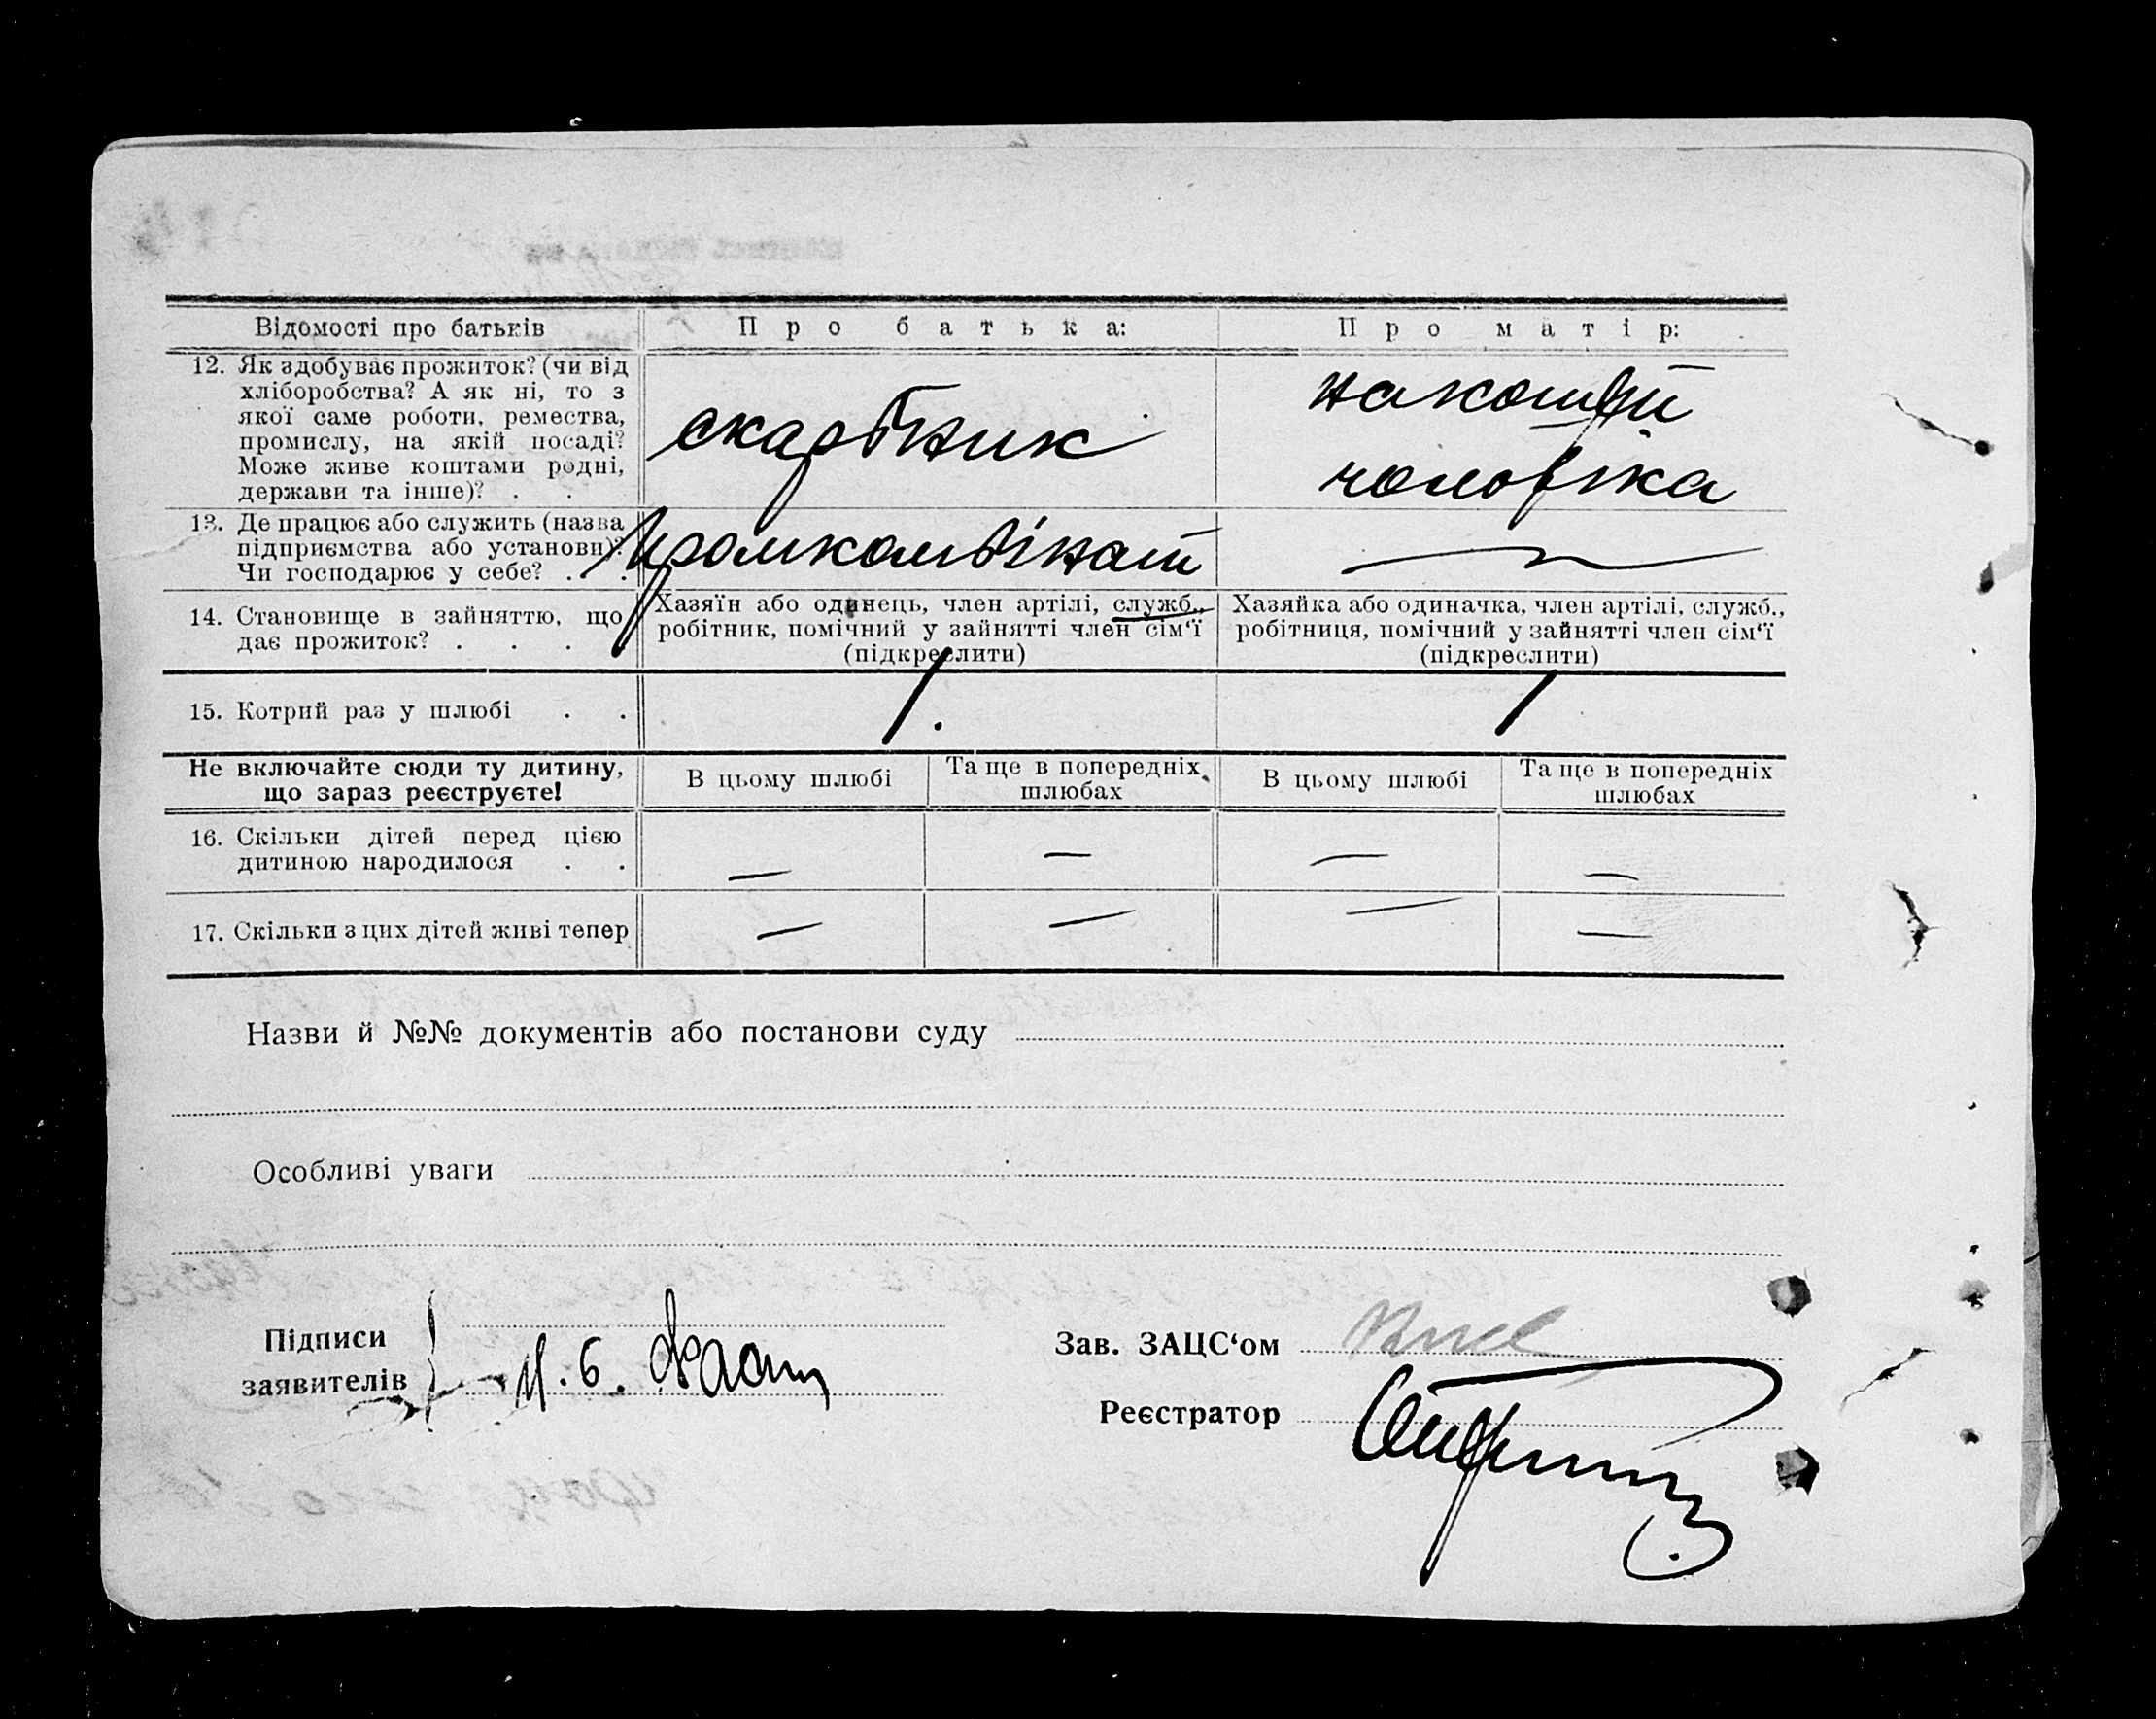 Відомості про батьків
Про батька:
Про матір:
12. Як здобуває прожиток? (чи від
хліборобства? А як ні, то з
якої саме роботи, ремества,
промислу, на якій посаді?
Може живе коштами родні,
держави та інше)? . .
скарбник
на кошти
чоловіка
13. Де працює або служить (назва
підприємства або установи)?
Чи господарює у себе? . .
Промкомбінат
—
14. Становище в зайняттю, що
дає прожиток? . . .
Хазяїн або одинець, член артілі, служб.,
робітник, помічний у зайнятті член сім‘ї
(підкреслити)
Хазяйка або одиначка, член артілі, служб.,
робітниця, помічний у зайнятті член сім‘ї
(підкреслити)
15. Котрий раз у шлюбі . .
1.
1
Не включайте сюди ту дитину,
що зараз реєструєте!
В цьому шлюбі
Та ще в попередніх
шлюбах
В цьому шлюбі
Та ще в попередніх
шлюбах
16. Скільки дітей перед цією
дитиною народилося . .
— — — —
17. Скільки з цих дітей живі тепер
— — — —
Назви й №№ документів або постанови суду
Особливі уваги
Підписи
заявителів
Зав. ЗАЦС‘ом
Реєстратор